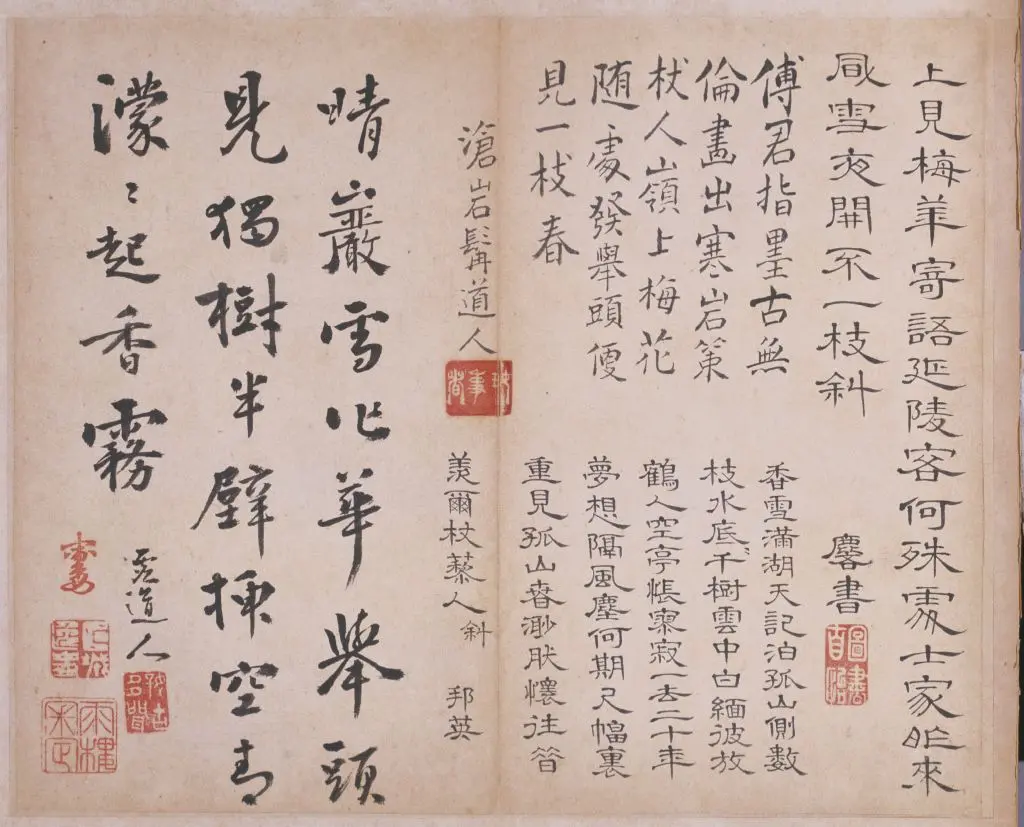 上見梅華寄語延陵客何殊處士家昨來
風雪夜開不一枝斜
書
傅君指墨古無
倫畫出寒岩策
杖人山嶺上梅花
随〻處發舉頭便
見一枝春
滄岩髯道人
香雪滿湖天記泊孤山側數
枝水底千樹雲中白緬彼放
鶴人空亭悵寥寂一去二十年
夢想隔風塵何期尺幅裏
重見孤山春渺肰懷往昝
羨爾杖藜人斜 邦英
晴巖雪作華舉頭
見獨樹半壁插空青
濛〻起香霧
道人